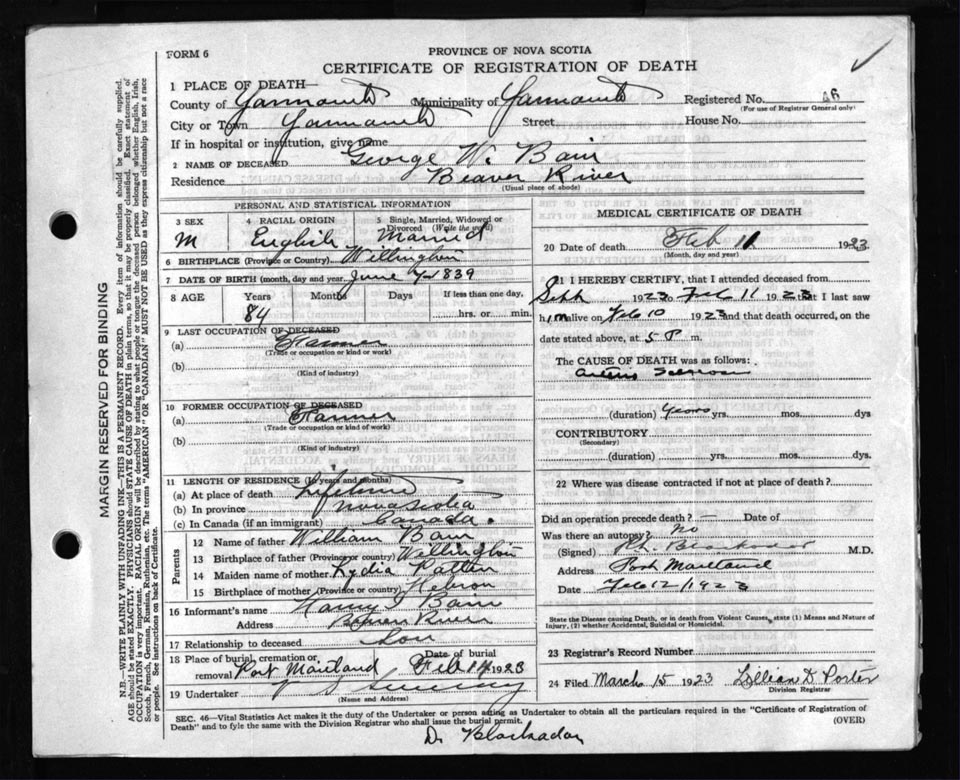 FORM 6
PROVINCE OF NOVA SCOTIA
CERTIFICATE OF REGISTRATION OF DEATH
1 PLACE OF DEATH—
County of Yarmouth Municipality of Yarmouth Registered No.
(For use of Registrar General only)
City or Town Yarmouth Street House No.
If in hospital or institution, give name
2 NAME OF DECEASED George W. Bain
Residence Beaver River
(Usual place of abode)
PERSONAL AND STATISTICAL INFORMATION
3 SEX 4 RACIAL ORIGIN 5 Single, Married, Widowed or Divorced (Write the word)
M English Married
6 BIRTHPLACE (Province or Country) Wellington
7 DATE OF BIRTH (month, day and year) June 1839
8 AGE Years Months Days If less than one day,
84 hrs. or min.
9 LAST OCCUPATION OF DECEASED
(a)
(Trade or occupation or kind or work)
(b)
(Kind of industry)
10 FORMER OCCUPATION OF DECEASED
(a)
(Trade or occupation or kind of work)
(b)
(Kind of industry)
11 LENGTH OF RESIDENCE (In years and months)
(a) At place of death Lifetime
(b) In province Nova Scotia
(c) In Canada (if an immigrant) Canada.
Parents
12 Name of father William Bain
13 Birthplace of father (Province or country) Wellington
14 Maiden name of mother Lydia Patten
15 Birthplace of mother (Province or country) Hebron
16 Informant's name Harvey Bain
Address Beaver River
17 Relationship to deceased Son
18 Place of burial, cremation or removal Port Maitland Date of burial Feb 14 1923
19 Undertaker
(Name and Address)
MEDICAL CERTIFICATE OF DEATH
20 Date of death Feb 11 1923
(Month, day and year)
21 I HEREBY CERTIFY, that I attended deceased from
Sept 1922 to Feb 11 1923 that I last saw
him alive on Feb 10 1923 and that death occurred, on
date stated above, at 5 P m.
The CAUSE OF DEATH was as follows:
(duration) Years yrs. mos. dys
CONTRIBUTORY
(Secondary)
(duration) yrs. mos. dys.
22 Where was disease contracted if not at place of death?
Did an operation precede death? — Date of
Was there an autopsy? No
(Signed) Blackadar M.D.
Address Port Maitland
Date Feb 12 / 1923
State the Disease causing Death, or in death from Violent Causes, state (1) Means and Nature of Injury, (2) whether Accidental, Suicidal or Homicidal.
23 Registrar's Record Number
24 Filed March 15 1923 Lillian D Porter
Division Registrar
SEC. 46—Vital Statistics Act makes it the duty of the Undertaker or person acting as Undertaker to obtain all the particulars required in the "Certificate of Registration of
Death" and to fyle the same with the Division Registrar who shall issue the burial permit. (OVER)
D. Blackadar
MARGIN RESERVED FOR BINDING
N.B.—WRITE PLAINLY WITH UNFADING INK—THIS IS A PERMANENT RECORD. Every item of information should be carefully supplied.
AGE should be stated EXACTLY. PHYSICIANS should STATE CAUSE OF DEATH in plain terms, so that it may be properly classified. Exact statement of
OCCUPATION is very important. RACIAL ORIGIN will be described by stating to what people or tongue the deceased person belonged whether English, Irish,
Scotch, French, German, Russian, Ruthenian, etc. The terms "AMERICAN" OR "CANADIAN" MUST NOT BE USED as they express citizenship but not a race
or people. See instructions on back of Certificate.